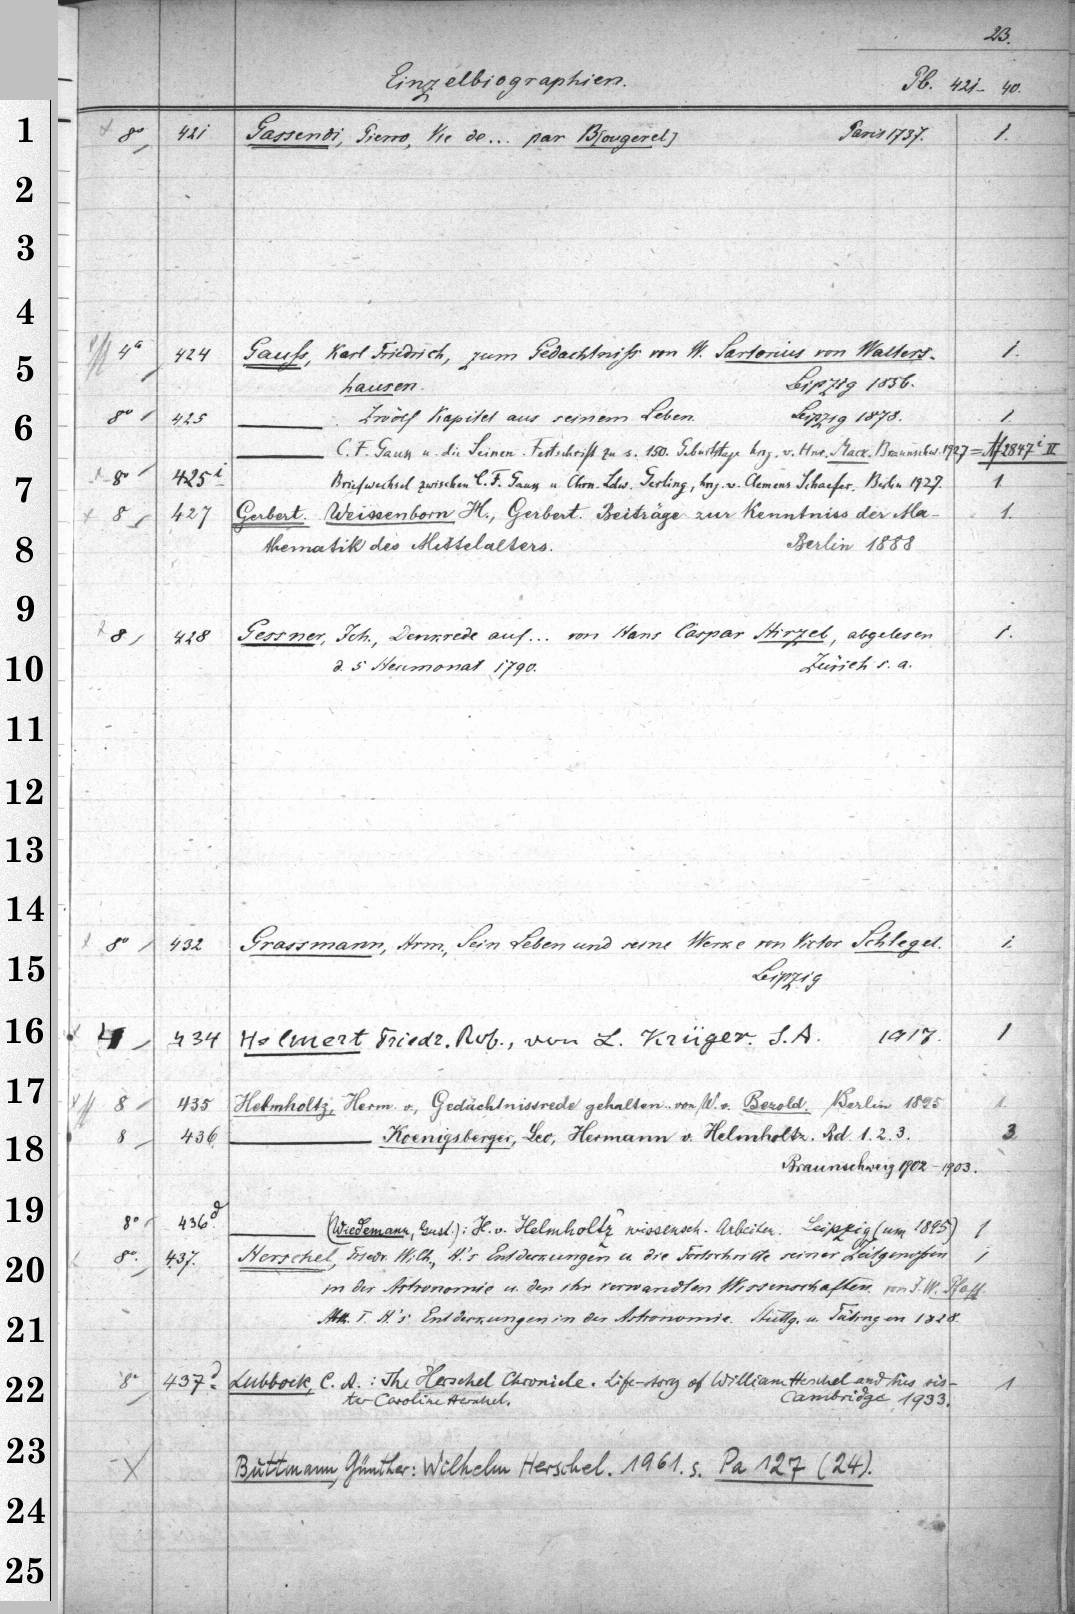 23.
Einzelbiographien. Pb. 421- 40.
1 8° 421 Gassendi, Pierro, Vie de... par B[ougerel] Paris 1737. 1.
2
3
4
5 4° 424 Gauss, Karl Friedrich, zum Gedächtniss von W. Sartorius von Walters- 1.
hausen. Leipzig 1856.
6 8° 425 Zwölf Kapitel aus seinem Leben. Leipzig 1878. 1.
C. F. Gauss u. die Seinen. Festschrift zu s. 150. Geburtstage hrsg. v. Hnr. Mack. Braunschw. 1927 = Af 2847 i II
7 8° 425 i Briefwechsel zwischen C. F. Gauss u. Chrn. Ldw. Gerling, hrsg. v. Clemens Schaefer. Berlin 1927. 1
8 427 Gerbert. Weissenborn H., Gerbert. Beiträge zur Kenntniss der Ma- 1.
8 thematik des Mittelalters. Berlin 1888
9
8 428 Gessner, Joh., Denkrede auf... von Hans Caspar Hirzel, abgelesen 1.
10 d. 5 Heumonat 1790. Zürich s. a.
11
12
13
14
8° 432 Grassmann, Hrm., Sein Leben und seine Werke von Victor Schlegel. 1.
15 Leipzig
16 4 434 Helmert Friedr. Rob., von L. Krüger. S.A. 1917. 1
17 8 435 Helmholtz, Herm. v., Gedächtnissrede gehalten.. von W. v. Bezold. Berlin 1895 1.
18 8 436 Koenigsberger, Leo, Hermann v. Helmholtz. Bd 1. 2. 3. 3
Braunschweig 1902-1903.
19 8° 436 d (Wiedemann, Gust.): H. v. Helmholtz' wissensch. Arbeiten. Leipzig (um 1895) 1
20 8° 437. Herschel, Friedr. Wilh., H's Entdeckungen u. die Fortschritte seiner Zeitgenossen 1
in der Astronomie u. den ihr verwandten Wissenschaften von J. W. Pfaff
21 T. H's Entdeckungen in der Astronomie. Stuttg. u. Tübingen 1828.
22 8° 437 d Lubbock, C. A.: The Herschel Chronicle. Life-story of William Herschel and his sis- 1
ter Caroline Herschel. Cambridge 1933.
23 X Buttmann, Günther: Wilhelm Herschel. 1961. s. Pa 127 (24).
24
25